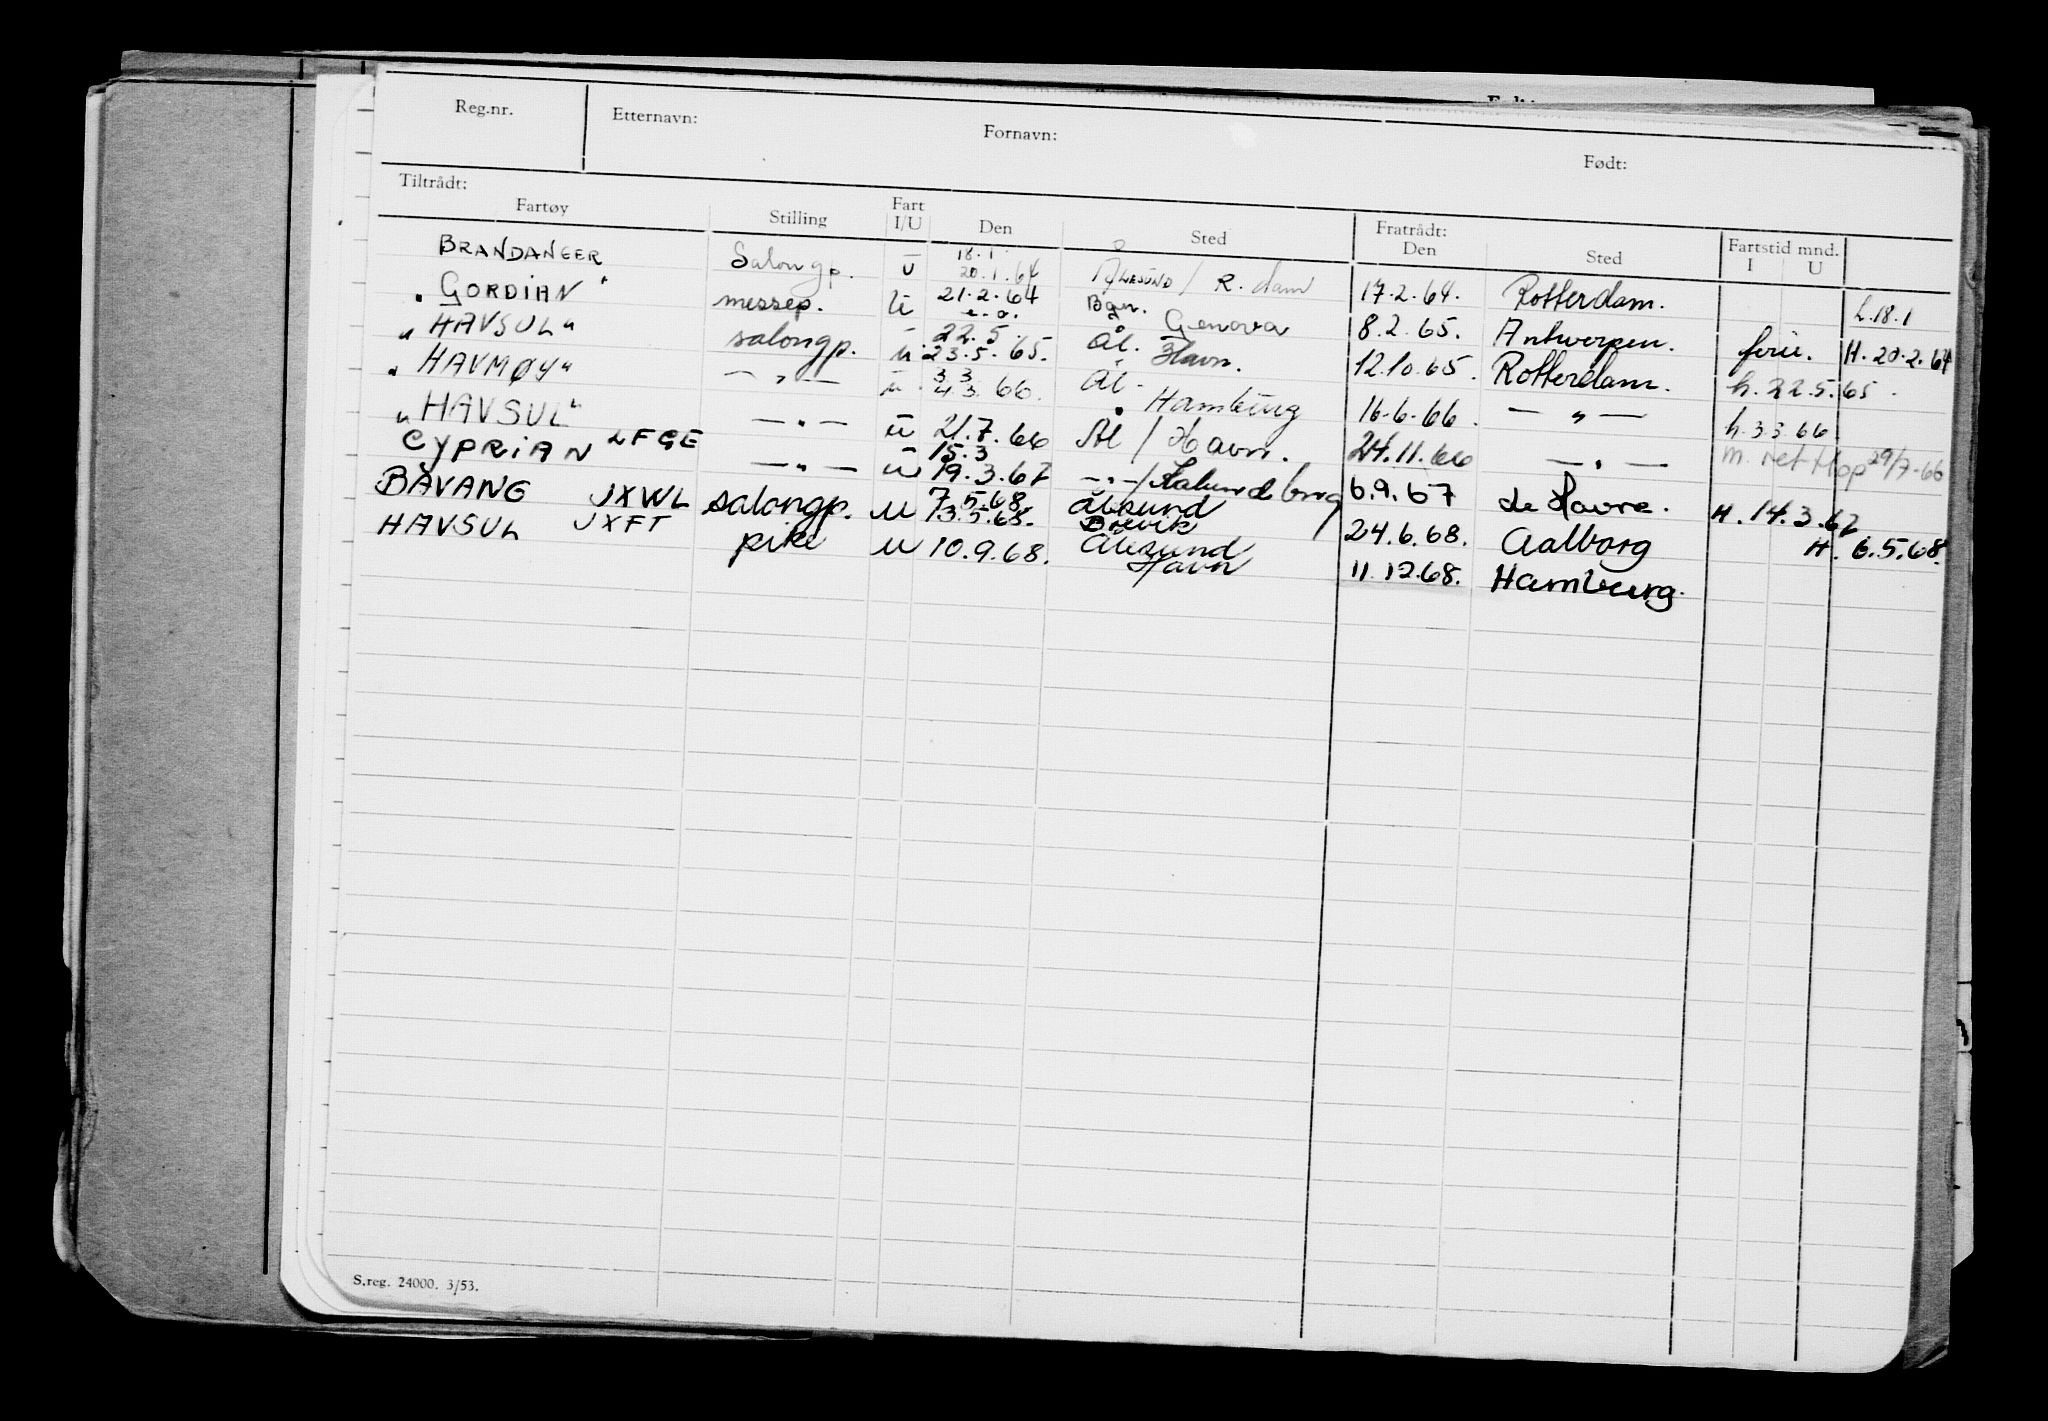 Reg.nr. Etternavn: Fornavn: Født:
Tiltrådt: Fratrådt:
Fartøy Stilling Fart I/U Den Sted Den Sted Fartstid mnd. I U
BRANDANGER Salongp. U 18.1 20.1.64 Ålesund / R.dam 17.2.64. Rotterdam. h.18.1
"GORDIAN" messep. U 21.2.64 e.o. Bgn. Genova 8.2.65. Antwerpen. ferie. H. 20.2.64
"HAVSUL" salongp. U 22.5. 23.5.65. Ål. Havn. 12.10.65. Rotterdam. h.22.5.65.
"HAVMØY" — " — U 3.3 4.3.66. Ål. Hamburg 16.6.66. — " — h.3.3.66
"HAVSUL" — " — U 21.7.66 Ål / Havn. 24.11.66 — " — m. ret Hop 29/7-66
CYPRIAN LFGE — " — U 15.3 19.3.67 — " — / Kalundborg 6.9.67 Le Havre. H. 14.3.67
BÅVANG JXWL salongp. U 7.5.68. 13.5.68. Ålesund Brevik 24.6.68. Aalborg H. 6.5.68.
HAVSUL JXFT pike U 10.9.68. Ålesund Havn 11.12.68. Hamburg.
S.reg. 24000. 3/53.